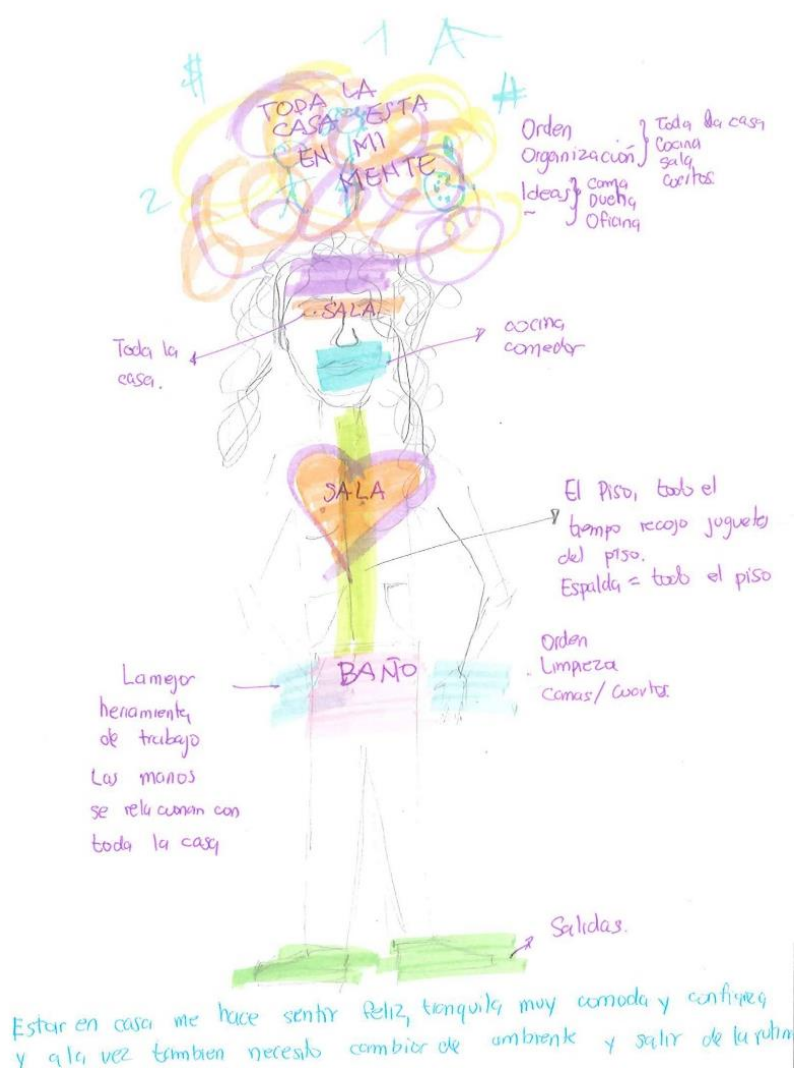 $ 1 A #
TODA LA
CASA ESTA
EN MI
MENTE
2
Orden
Organización
Toda la casa
Cocina
Sala
Cuartos.
Ideas
cama
Ducha
Oficina
SALA
Toda la
casa.
cocina
comedor
SALA
El Piso, todo el
tiempo recojo juguetes
del piso.
Espalda = todo el piso
BAÑO
La mejor
herramienta
de trabajo
Las manos
se relacionan con
toda la casa
Orden
Limpieza
Camas/Cuartos
Salidas.
Estar en casa me hace sentir feliz, tranquila muy comoda y confianza
y a la vez tambien necesito cambiar de ambiente y salir de la rutina